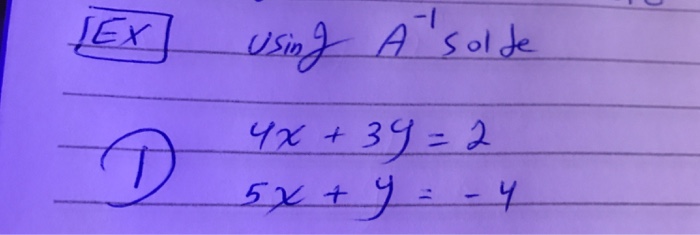 EX using A⁻¹ solde
① 4x + 3y = 2
5x + y = -4